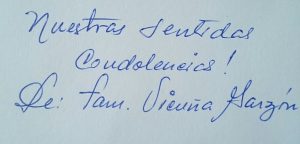 Nuestras sentidas
Condolencias!
De: Fam. Vicuña Garzón